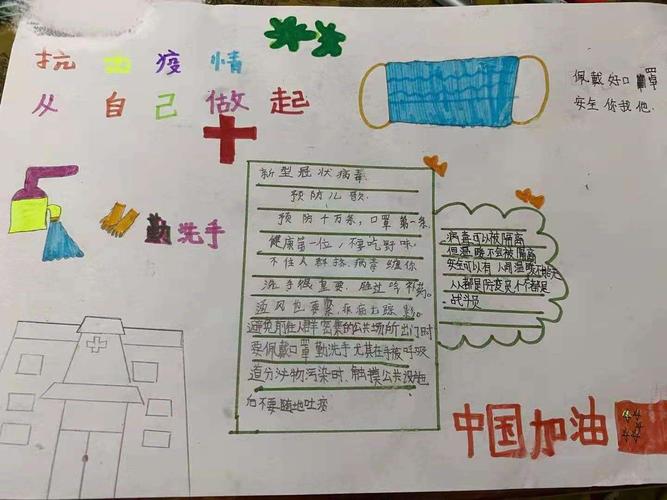 抗击疫情
从自己做起
佩戴好口罩
安全你我他.
勤洗手
新型冠状病毒
预防儿歌
预防千万条,口罩第一条.
健康第一位,不要吃野味
不住人群挤,病毒缠你
洗手很重要,胜过吃补药。
通风也要紧,疾病无踪影。
避免前往人群密集的公共场所出门时
要佩戴口罩勤洗手尤其在手被呼吸
道分泌物污染时、触摸公共设施
后不要随地吐痰
病毒可以被隔离
但温暖不会被隔离
安全可以有
人人都是防疫员个个都是
战斗员
中国加油